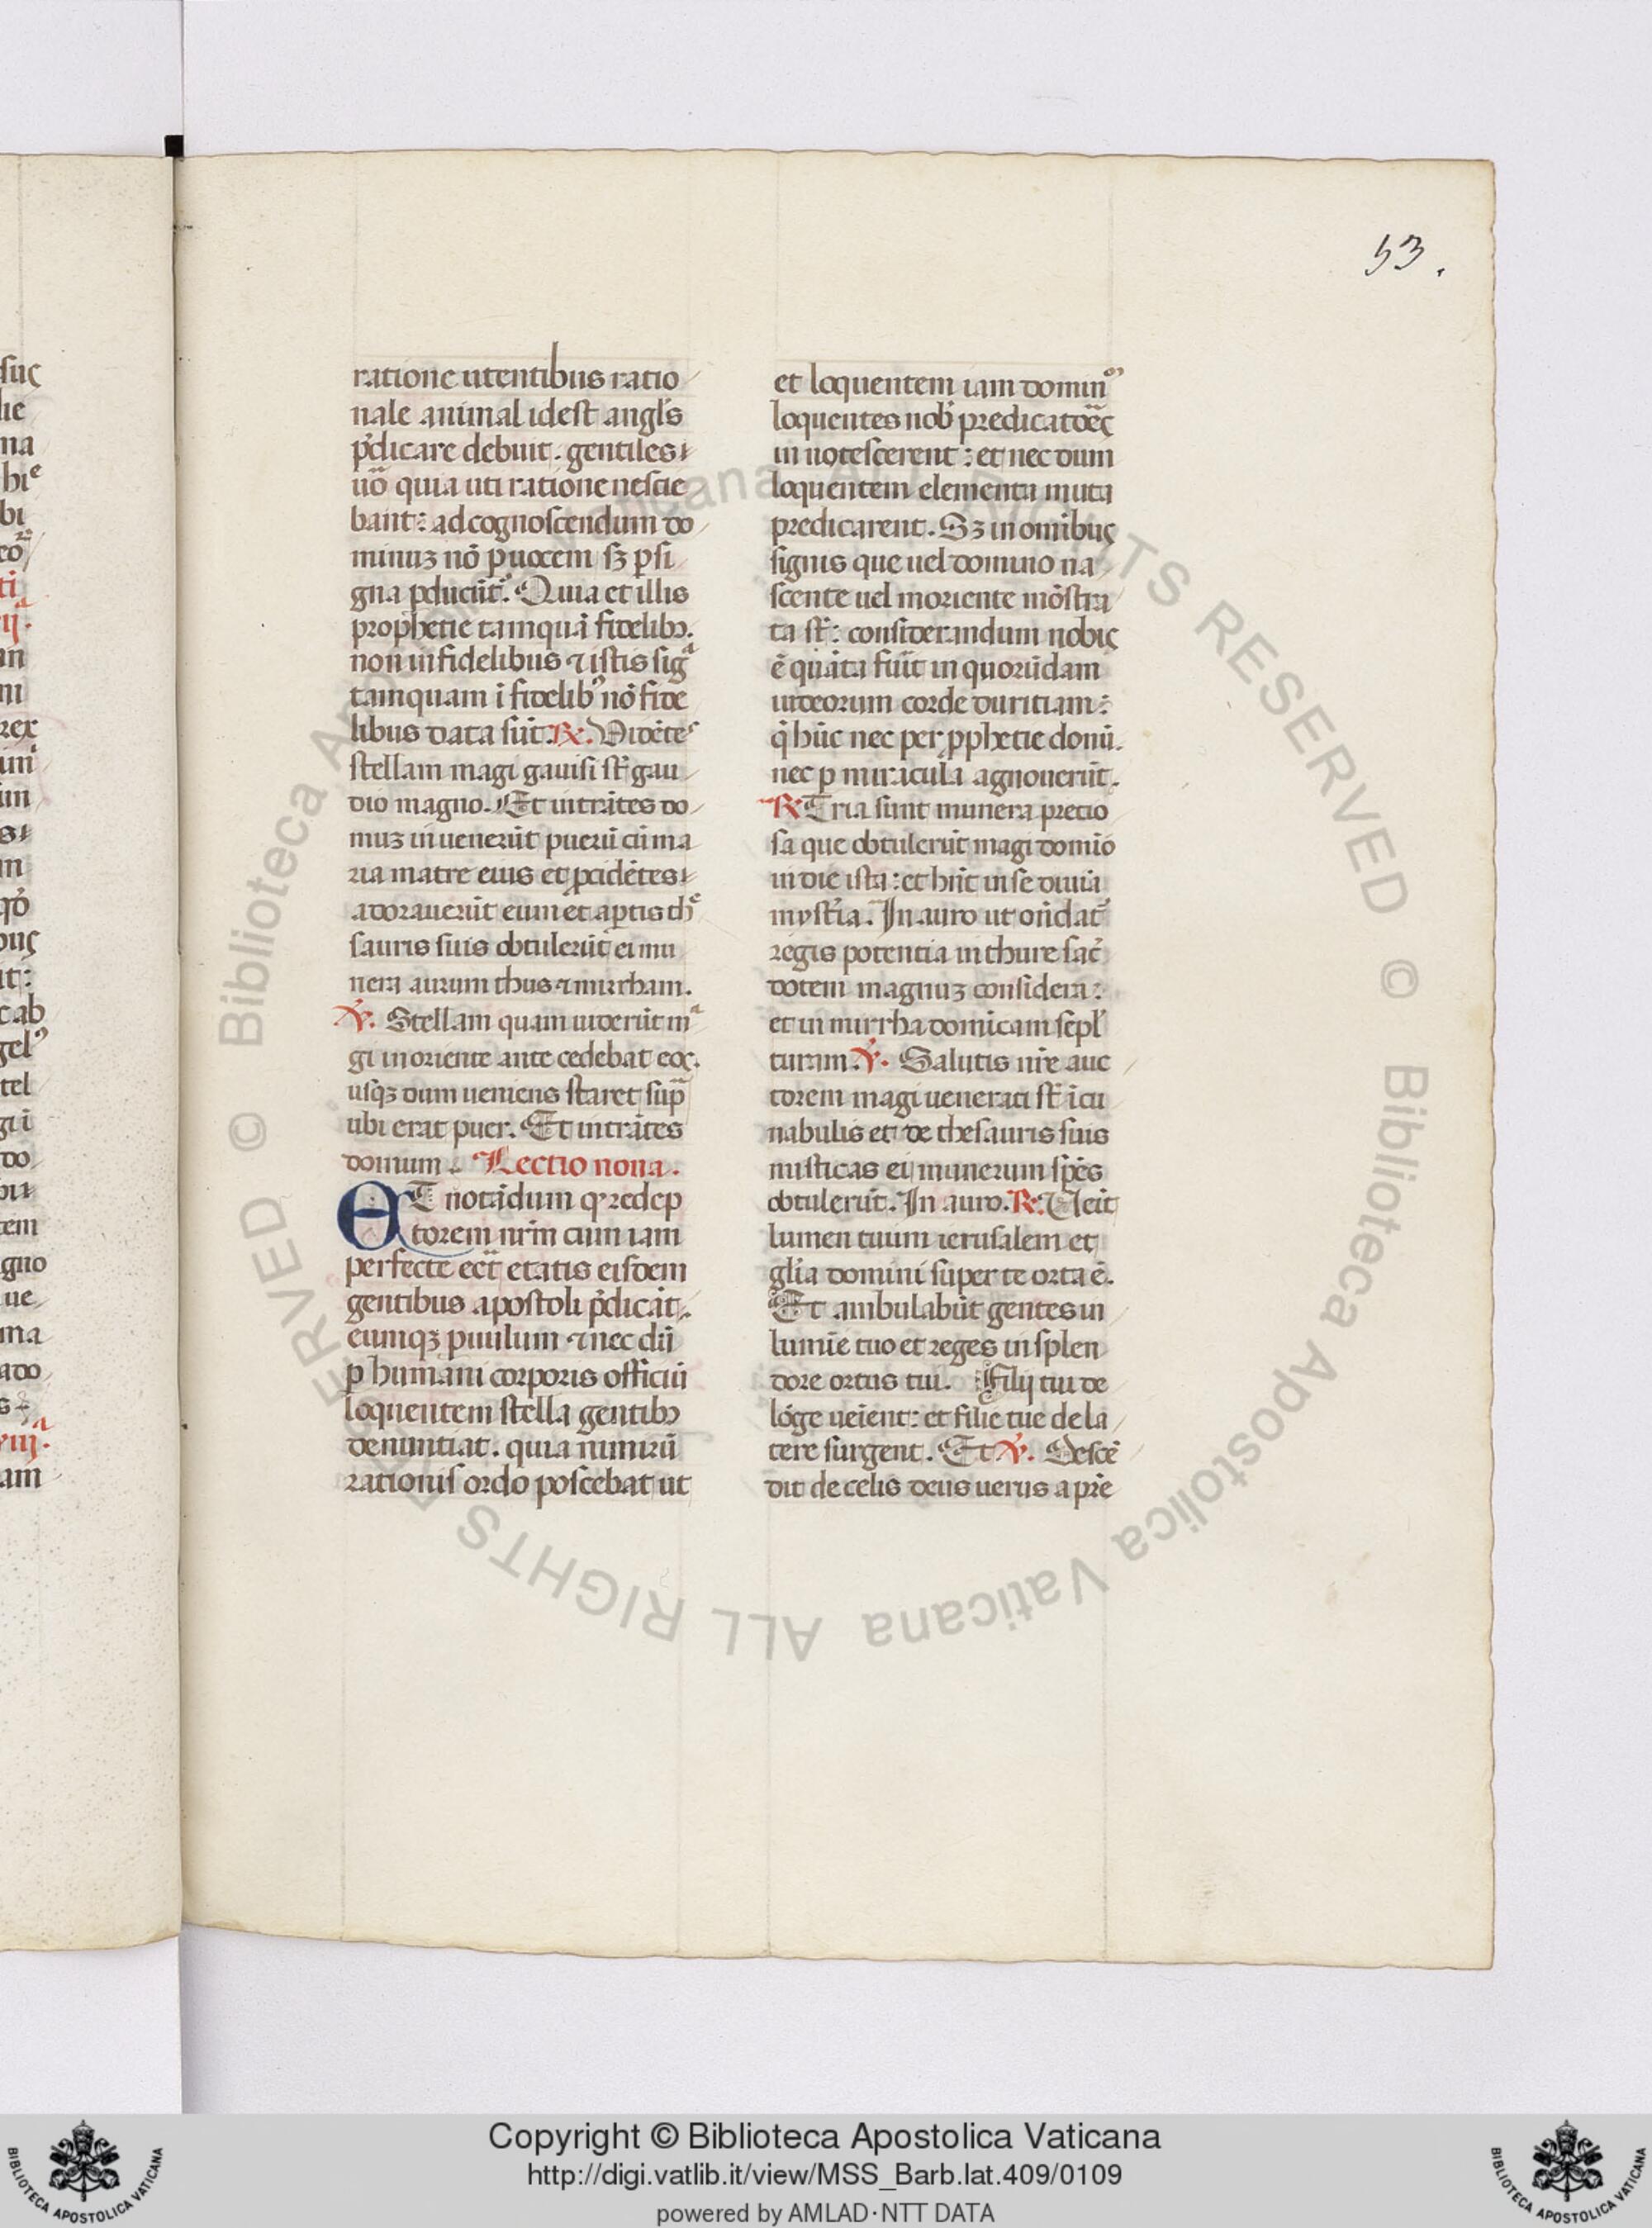 53.
ratione utentibus ratio
nale animal idest angl's
p̄dicare debuit. gentiles
uō quia uti ratione nescie
bant: ad cognoscendum do
minuȝ nō p uocem sȝ p si
gna pducūt̄. Quia et illis
prophetie tamquā fidelibꝫ.
non infidelibus ⁊ istis sigᵃ
tamquam ī fidelibꝰ nō fide
libus data sūt. ℟. Uidēteˢ
stellam magi gauisi st̄ gau
dio magno. Et intrātes do
muȝ inuenerūt puerū cū ma
ria matre eius et pcidētes
adorauerūt eum et aptis thᵉ
sauris suis obtulerūt ei mu
nera aurum thus ⁊ mirrham.
℣. Stellam quam uiderūt mᵃ
gi in oriente ante cedebat eos.
usqȝ dum ueniens staret supᵃ
ubi erat puer. Et intrātes
domum. Lectio nona.
ET notādum qꝫ redēp
torem nr̄m cum iam
perfecte eēt etatis eisdem
gentibus apostoli p̄dicāt.
eumqȝ puulum ⁊ nec dū
p humani corporis officiū
loquentem stella gentibꝫ
denuntiat. quia nimirū
rationis ordo poscebat ut
et loquentem iam dominꝰ
loquentes nob̄ predicatoēs
innotescerent: et nec dum
loquentem elementa muta
predicarent. Sȝ in omībus
signis que uel domino na
scente uel moriente mōstra
ta st̄: considerandum nobis
ē quāta fuīt in quorūdam
iudeorum corde duritiam:
q̄ hūc nec per pphetie donū.
nec p miracula agnouerūt.
℟ Tria sunt munera precio
sa que obtulerūt magi domīo
in die ista: et hn̄t in se diuīa
mystīa. In auro ut on̄dat᷑
regis potentia in thure sac̄
dotem magnuȝ considera:
et in mirrha domīcam sepl'
turam. ℣. Salutis nr̄e auc
torem magi uenerati st̄ ī cu
nabulis et de thesauris suis
misticas ei munerum spēs
obtulerūt. In auro. ℟. Ueīt
lumen tuum ierusalem et
gl'ia domini super te orta ē.
Et ambulabūt gentes in
lumīe tuo et reges in splen
dore ortus tui. Filij tui de
lōge ueīent: et filie tue de la
tere surgent. Et ℣. Descē
dit de celis deus uerus a pr̄e
Copyright © Biblioteca Apostolica Vaticana
http://digi.vatlib.it/view/MSS_Barb.lat.409/0109
powered by AMLAD·NTT DATA
BIBLIOTECA APOSTOLICA VATICANA
BIBLIOTECA APOSTOLICA VATICANA
© Biblioteca Apostolica Vaticana ALL RIGHTS RESERVED
© Biblioteca Apostolica Vaticana ALL RIGHTS RESERVED